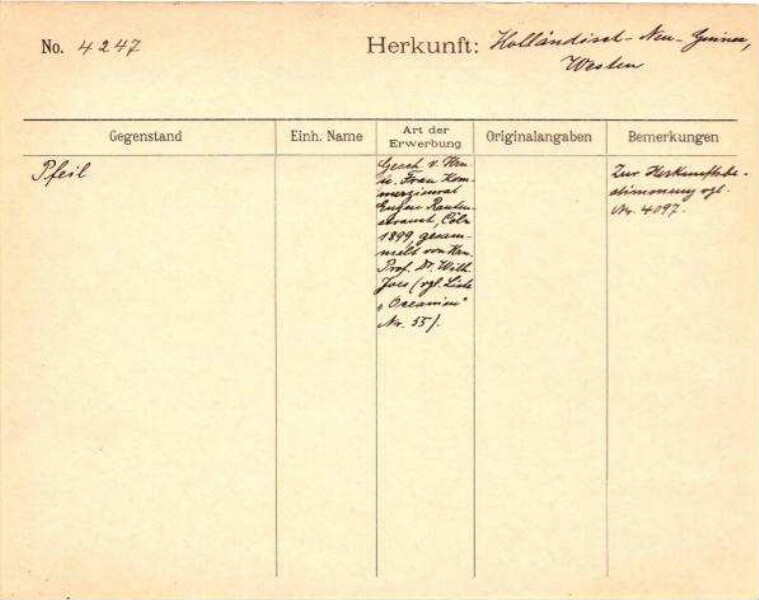 No. 4247
Herkunft: Holländisch-Neu-Guinea,
Westen
Gegenstand
Einh. Name
Art der
Erwerbung
Originalangaben
Bemerkungen
Pfeil
Gesch. v. Hrn
u. Frau Kom-
merzienrat
Eugen Rauten-
strauch, Cöln
1899, gesam-
melt von Hrn.
Prof. Dr. Wilh.
Joest (vgl. Liste
"Oceanien"
Nr. 55).
Zur Herkunftsbe-
stimmung vgl.
Nr. 4097.